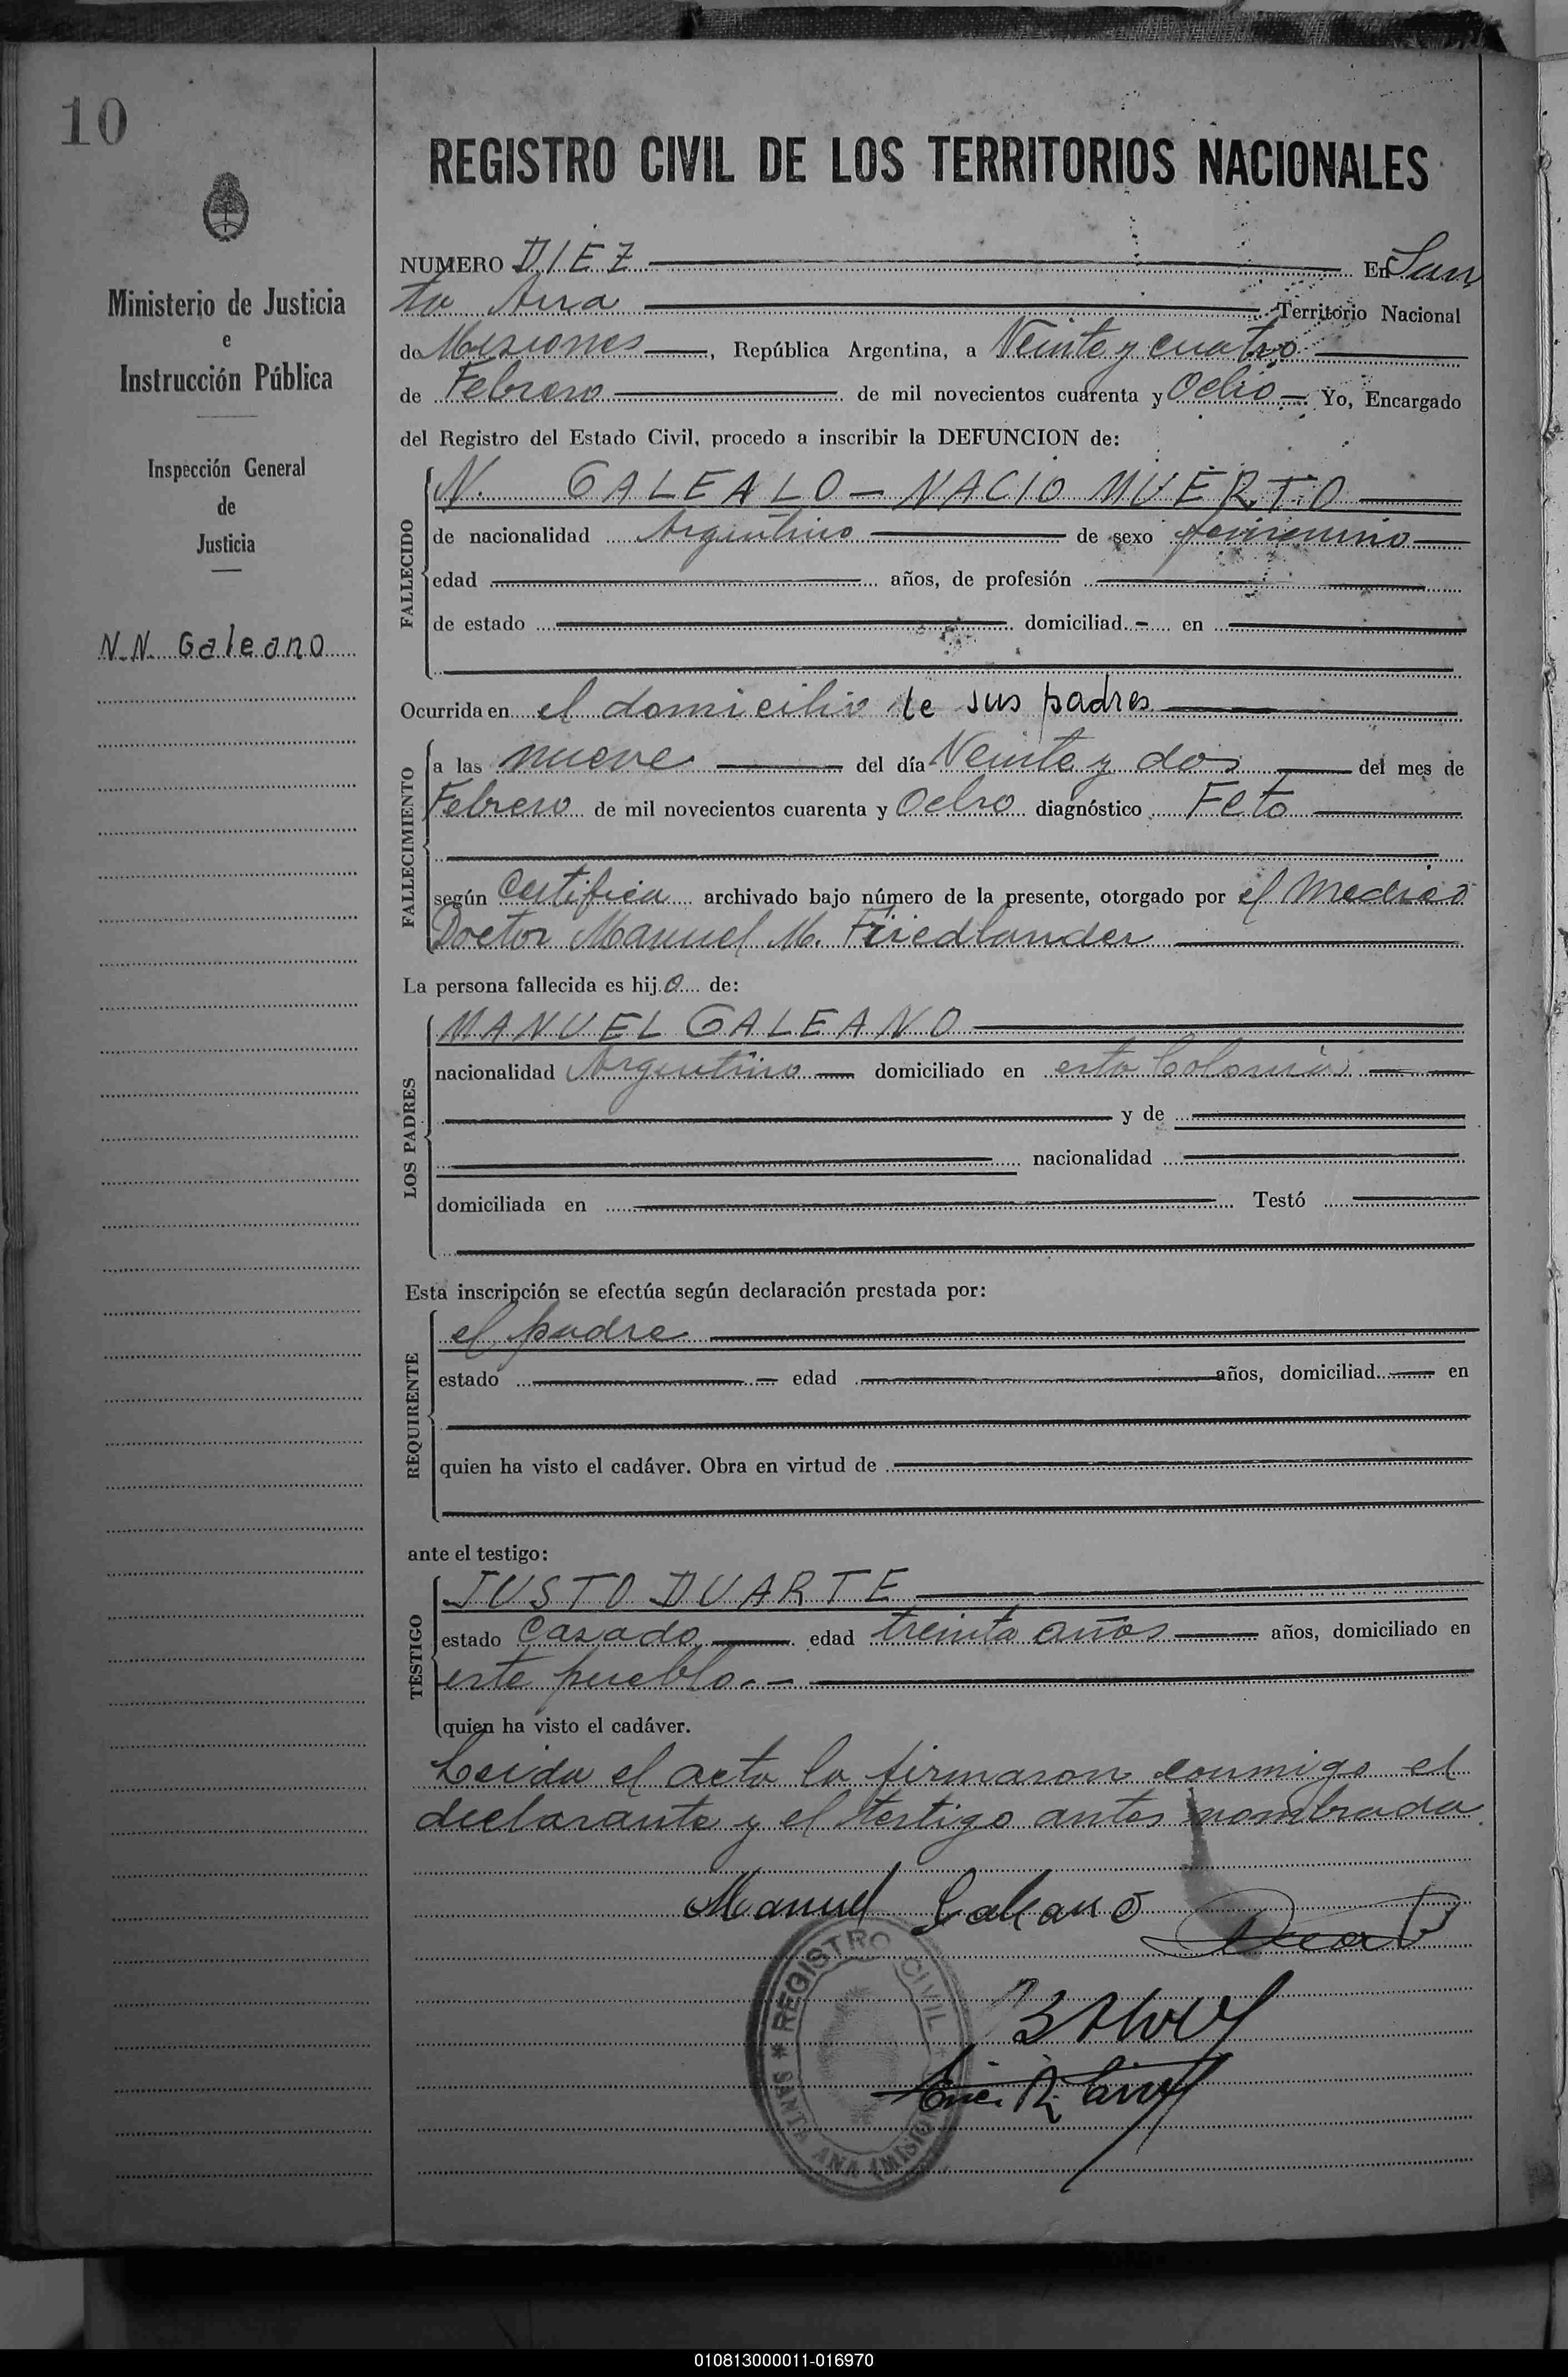 10
Ministerio de Justicia
e
Instrucción Pública
Inspección General
de
Justicia
N.N. Galeano
REGISTRO CIVIL DE LOS TERRITORIOS NACIONALES
NUMERO DIEZ En San
ta Ana Territorio Nacional
de Misiones, República Argentina, a Veinte y cuatro
de Febrero de mil novecientos cuarenta y Ocho Yo, Encargado
del Registro del Estado Civil, procedo a inscribir la DEFUNCION de:
FALLECIDO
N. GALEALO - NACIO MUERTO
de nacionalidad Argentino de sexo femenino
edad años, de profesión
de estado domiciliad en
Ocurrida en el domicilio de sus padres
FALLECIMIENTO
a las nueve del día Veinte y dos del mes de
Febrero de mil novecientos cuarenta y Ocho diagnóstico Feto
según Certifica archivado bajo número de la presente, otorgado por el Medico
Doctor Manuel M. Friedlander
La persona fallecida es hijo de:
LOS PADRES
MANUEL GALEANO
nacionalidad Argentino domiciliado en esta Colonia
y de
nacionalidad
domiciliada en Testó
Esta inscripción se efectúa según declaración prestada por:
REQUIRENTE
el padre
estado edad años, domiciliad en
quien ha visto el cadáver. Obra en virtud de
ante el testigo:
TESTIGO
JUSTO DUARTE
estado Casado edad treinta años años, domiciliado en
este pueblo.-
quien ha visto el cadáver.
Leida el acta la firmaron conmigo el
declarante y el testigo antes nombrado
Manuel Galeano
REGISTRO CIVIL
SANTA ANA (MISION
010813000011-016970